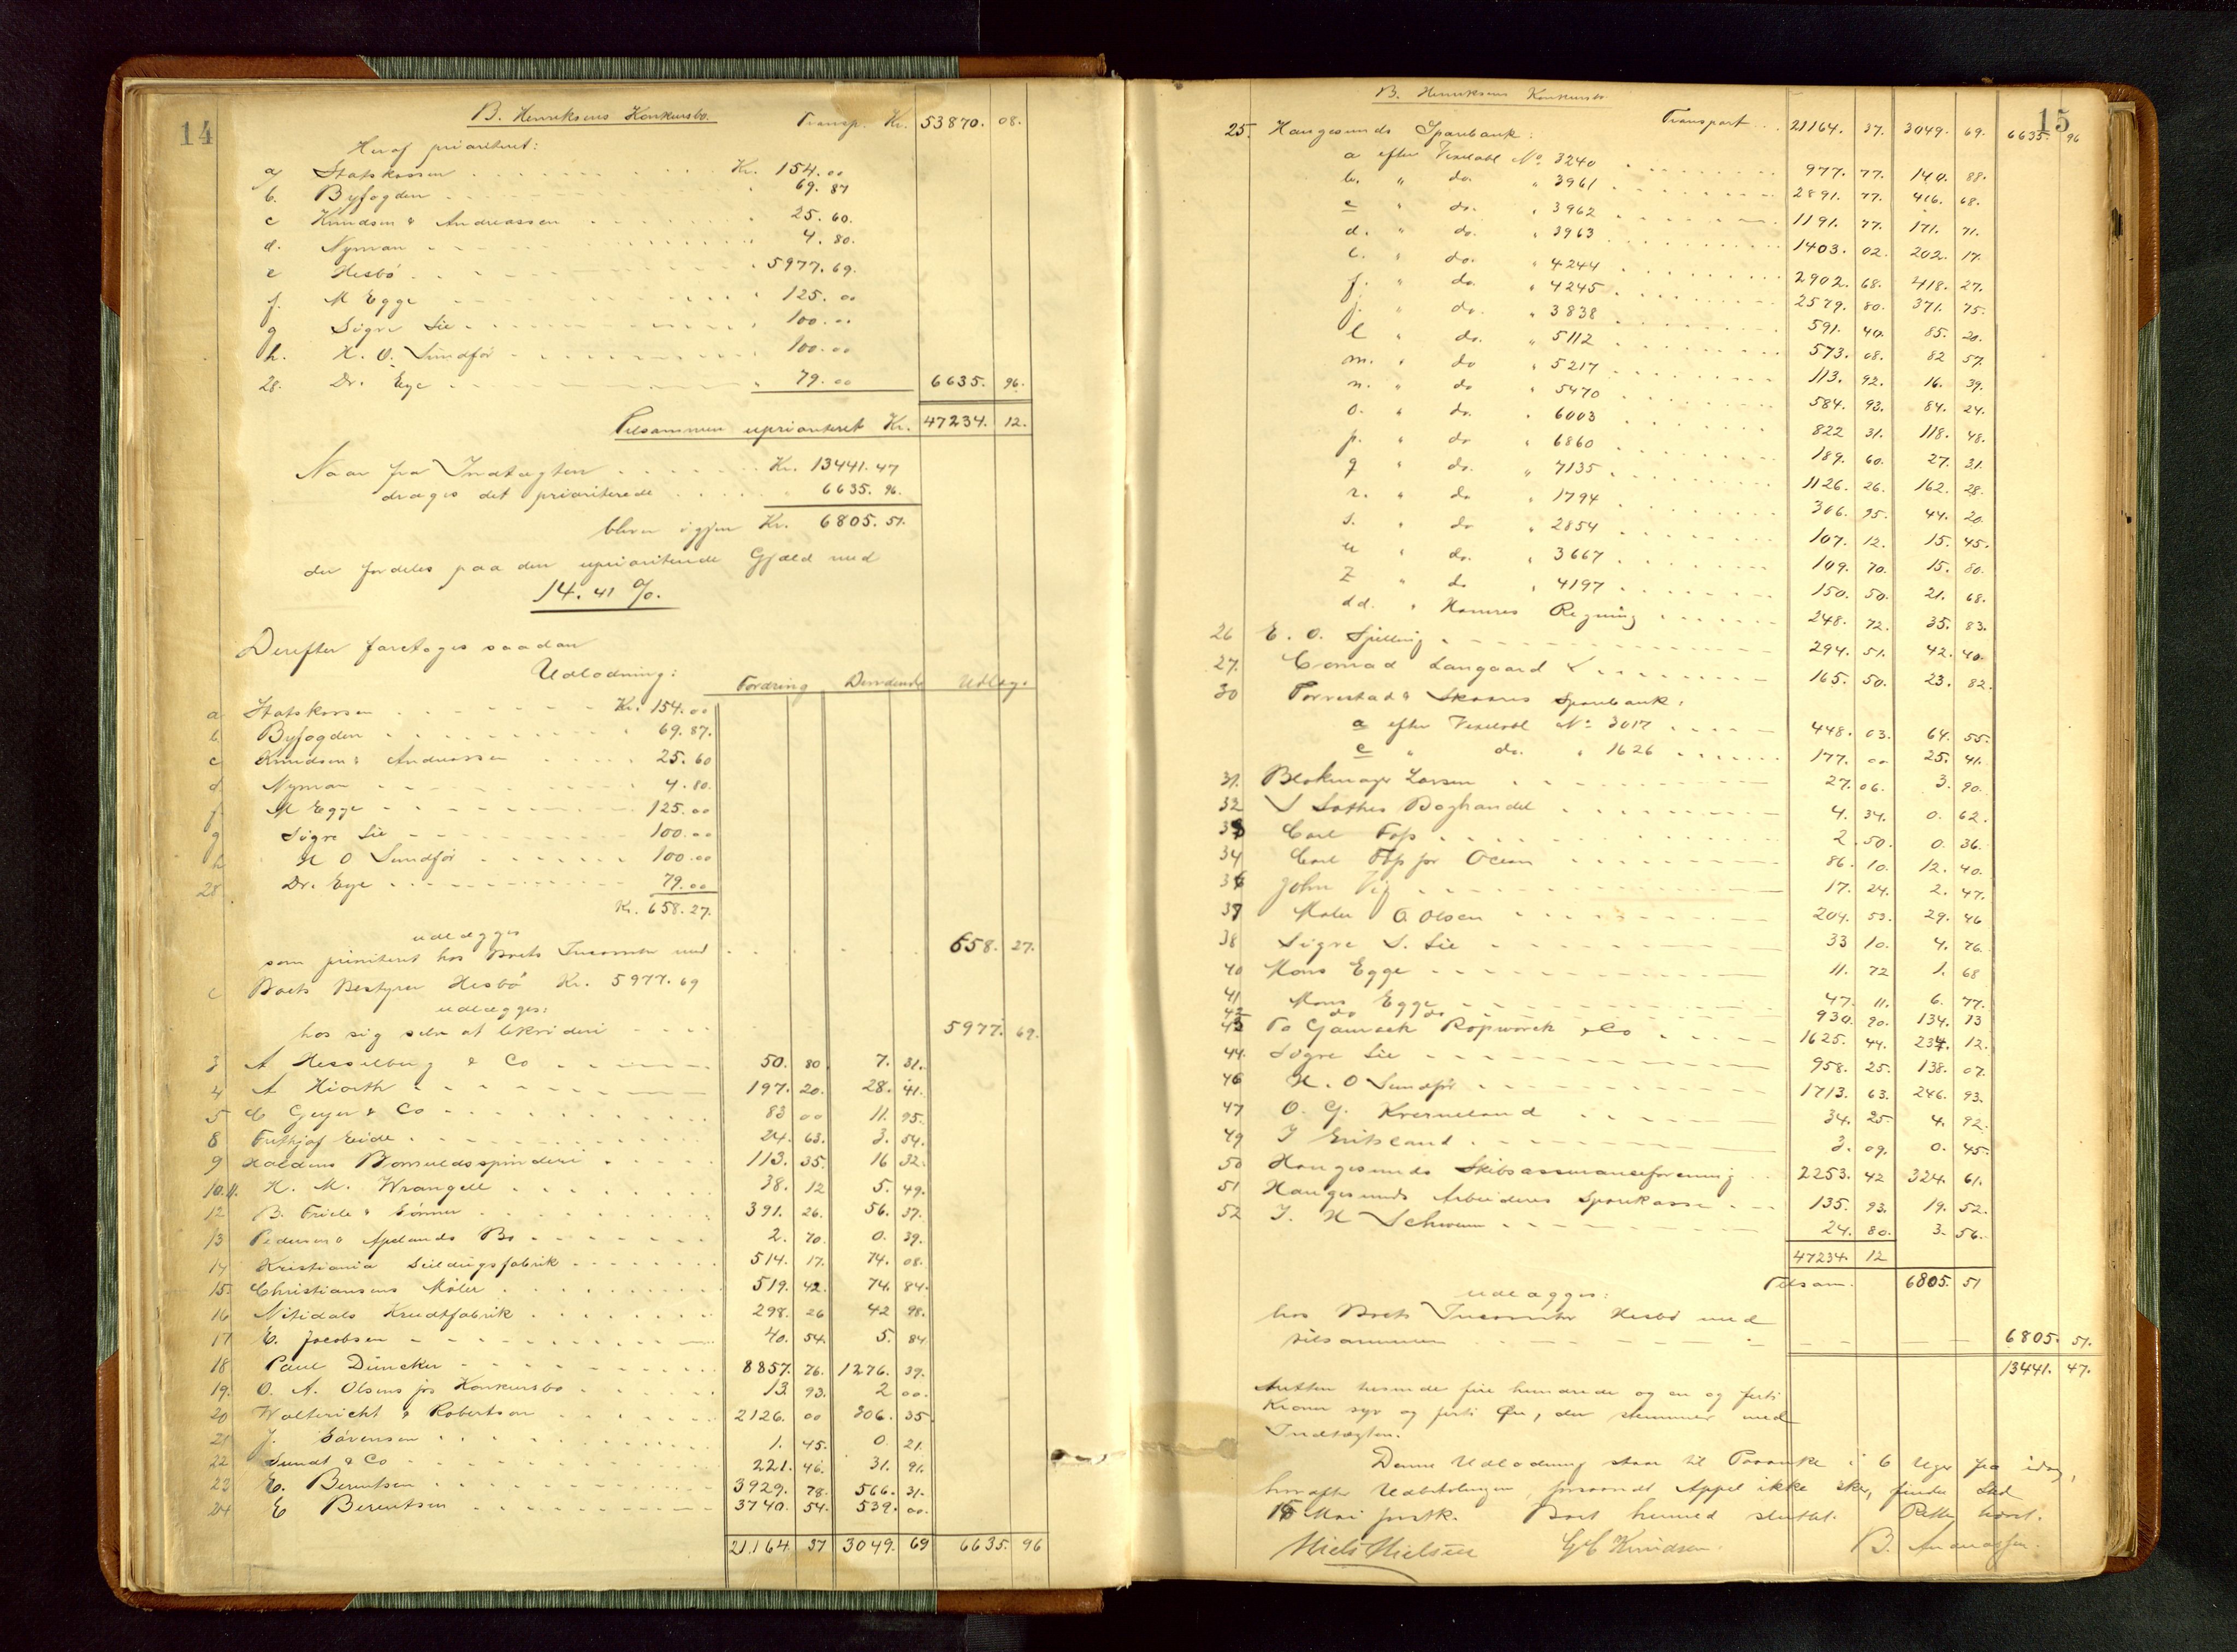 14
B. Henriksens Konkursbo.
Transp. Kr. 53870. 08.
Heraf prioriteret:
a) Statskassen Kr. 154.00
b. Byfogden " 69.87
c Knudsen & Andreassen " 25.60.
d. Nyman " 4.80.
e Hesbö " 5977.69.
f. M Egge " 125.00
g Sigre Lie " 100.00
h. H. O. Sundför " 100.00
28. Dr. Eye " 79.00 6635. 96.
Tilsammen uprioriteret Kr. 47234. 12.
Naar fra Indtægten Kr. 13441.47
drages det prioriterede " 6635.96.
bliver igjen Kr. 6805.51.
der fordeles paa den uprioriterede Gjæld med
14.41 %.
Derefter foretoges saadan
Udlodning:
Fordring Dividende Udlæg.
a Statskassen Kr. 154.00
b. Byfogden " 69.87.
c Knudsen & Andreassen " 25.60
d Nyman " 4.80.
f M Egge 125.00
g Sigre Lie 100.00
h H O Sundför 100.00
28 Dr. Eye 79.00
Kr. 658.27.
udlægges
som prioriteret hos Boets Incasator med 658. 27.
e Boets Bestyrer Hesbö Kr. 5977.69
udlægges:
hos sig selv at likvidere 5977. 69.
3 A Hesselberg & Co 50. 80 7. 31.
4 A Hiorth 197. 20. 28. 41.
5 C Geyer & Co 83 00 11. 95.
8 Frithjof Eide 24. 63. 3. 54.
9 Haldens Bomuldsspinderi 113. 35. 16 32.
10.11. H. M. Wrangell 38. 12 5. 49.
12 B. Friele & Sönner 391. 26. 56. 37.
13 Pedersen & Apelands Bo 2. 70. 0. 39.
14 Kristiania Seildugsfabrik 514. 17. 74. 08.
15. Christiansens Mölle 519. 42. 74. 84.
16 Nitidals Krudtfabrik 298. 26 42 98.
17 E. Jacobsen 40. 54. 5. 84.
18 Paul Düncker 8857. 76. 1276. 39.
19. O. A. Olsens jrs Konkursbo 13 93. 2 00.
20 Woltericht & Robertson 2126. 00 306. 35
21 J. Sörensen 1. 45. 0. 21.
22 Sundt & Co 221. 46. 31. 91.
23 E. Berentsen 3929. 78. 566. 31.
24 E Berentsen 3740. 54. 539. 00.
21164. 37 3049. 69 6635. 96
15
B. Henriksens Konkursbo
Transport 21164. 37. 3049. 69. 6635. 96
25. Haugesunds Sparebank:
a efter Vexelobl No 3240 977. 77. 140. 88.
b. " do. " 3961 2891. 77. 416. 68.
c " do. " 3962 1191. 77. 171. 71.
d. " do. " 3963 1403. 02. 202. 17.
e. " do. " 4244 2902. 68. 418. 27.
f. " do. " 4245 2579. 80. 371. 75.
j. " do. " 3838 591. 40. 85. 20.
l " do. " 5112 573. 08. 82 57.
m. " do " 5217 113. 92. 16. 39.
n. " do " 5470 584. 93. 84. 24.
o. " do. " 6003 822 31. 118. 48.
p. " do " 6860 189. 60. 27. 31.
q " do. " 7135 1126. 26. 162. 28.
r. " do " 1794 306. 95. 44. 20.
s. " do " 2854 107. 12. 15. 45.
u " do. " 3667 109. 70. 15. 80.
z " do " 4197 150. 50. 21. 68.
dd. " Hamres Regning 248. 72. 35. 83.
26 E. O. Spilling 294. 51. 42. 40.
27. Conrad Langaard 165. 50. 23. 82.
30 Torvestad & Skaares Sparebank:
a efter Vexelobl No 3017 448. 03. 64. 55.
c " do. " 1626 177. 00 25. 41.
31. Blokmager Larsen 27. 06. 3. 90.
32 Lothes Boghandel 4. 34. 0. 62.
33 Carl Fop 2. 50. 0. 36.
34 Carl Fop for Ocean 86. 10. 12. 40.
36 John Vig 17. 24. 2. 47.
37 Maler O. Olsen 204. 53. 29. 46
38 Sigre S. Lie 33 10. 4. 76.
40 Mons Egge 11. 72 1. 68
41 Mons Egge 47. 11. 6. 77.
42 do do 930. 90. 134. 13
43 To Gourock Ropework & Co 1625. 44. 234. 12.
44. Sigre Lie 958. 25. 138. 07.
46 H. O Sundför 1713. 63. 246. 93.
47 O. G. Kverneland 34. 25 4. 92.
49 J Eritsland 3. 09. 0. 45.
50 Haugesunds Skibsassuranceforening 2253. 42 324. 61.
51 Haugesunds Arbeideres Sparekasse 135. 93. 19. 52.
52 J. H Schwenn 24. 80. 3. 56.
47234. 12
Tilsam. 6805. 51
udlægges:
hos Boets Incasator Hesbö med
tilsammen 6805. 51.
13441. 47.
tretten tusinde fire hundrede og en og forti
Kroner syv og forti Öre, der stemmer med
Indtægten.
Denne Udlodning staar til Paaanke i 6 Uger fra idag,
hvorefter Udbetalingen, forsaavidt Appel ikke sker, finder Sted
15 Mai förstk. Boet hermed sluttet. Retten hævet.
Niels Nielsen G C Knudsen. B. Andreassen.